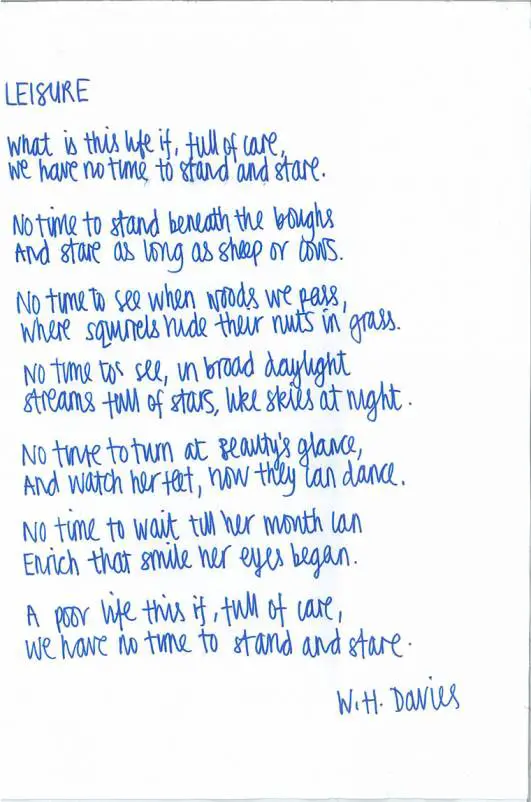 LEISURE
What is this life if, full of care,
we have no time to stand and stare.
No time to stand beneath the boughs
And stare as long as sheep or cows.
No time to see when woods we pass,
where squirrels hide their nuts in grass.
No time to see, in broad daylight
streams full of stars, like skies at night.
No time to turn at Beauty's glance,
And watch her feet, how they can dance.
No time to wait till her month can
Enrich that smile her eyes began.
A poor life this if, full of care,
we have no time to stand and stare.
W.H. DAVIES